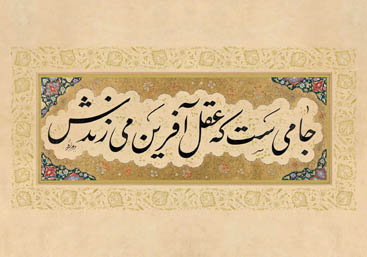 جامی ست که عقل آفرین می زندش